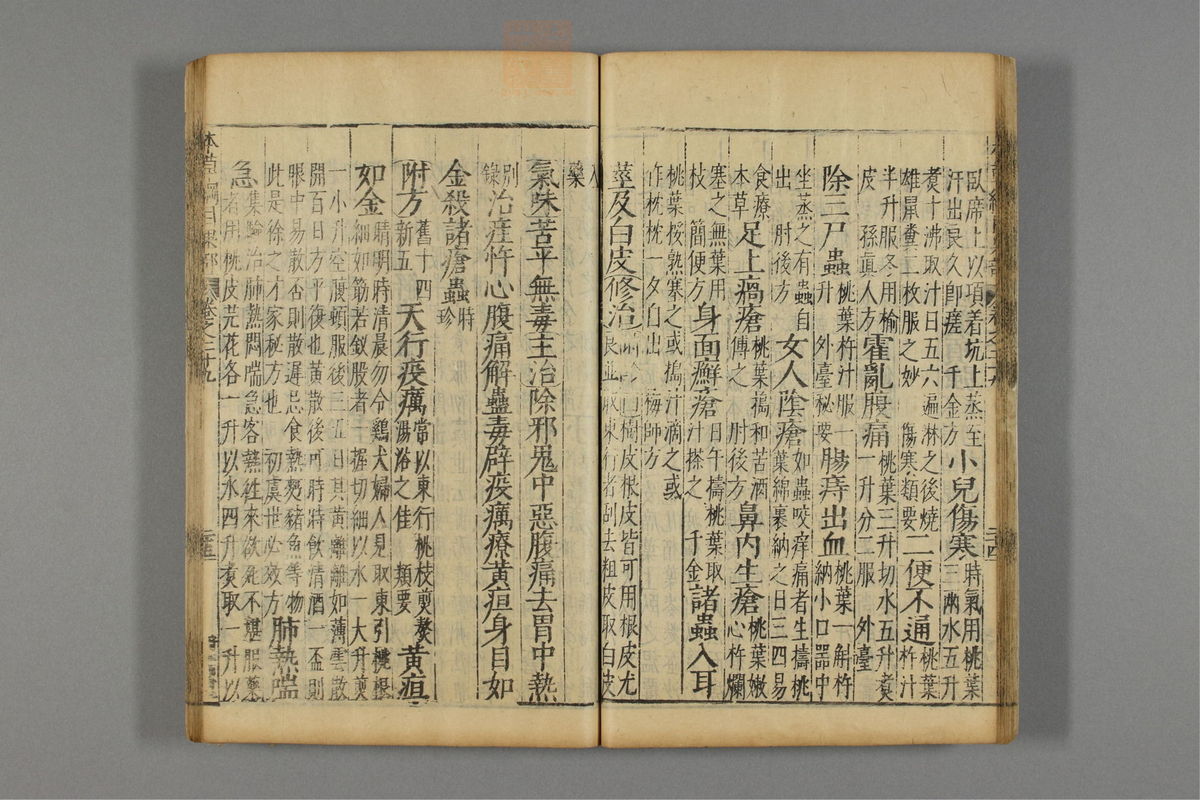 臥席上以項着坑上蒸至汗出良久即瘥 千金方 小兒傷寒 時氣用桃葉三兩水五升
煑十沸取汁日五六遍淋之後燒雄鼠糞二枚服之妙 傷寒類要 二便不通 桃葉杵汁
半升服冬用榆皮 孫眞人方 霍亂腹痛 桃葉三升切水五升煑一升分二服 外臺
除三尸蟲 桃葉杵汁服一升 外臺秘要 腸痔出血 桃葉一斛杵納小口器中
坐蒸之有蟲自出 肘後方 女人陰瘡 如蟲咬痒痛者生擣桃葉綿裹納之日三四易
食療本草 足上瘑瘡 桃葉搗和苦酒傅之 肘後方 鼻內生瘡 桃葉嫩心杵爛
塞之無葉用枝 簡便方 身面癬瘡 日午擣桃葉取汁搽之 千金 諸蟲入耳
桃葉挼熟塞之或搗汁滴之或作枕枕一夕自出 梅師方
莖及白皮 修治 樹皮根皮皆可用根皮尤良並取東行者刮去粗皮取白皮
入藥
氣味苦平無毒主治除邪鬼中惡腹痛去胃中熱
別錄 治疰忤心腹痛解蠱毒辟疫癘療黃疸身目如
金殺諸瘡蟲 時珍
附方 舊十四新五 天行疫癘 常以東行桃枝煎熬湯浴之佳 類要 黃疸
如金 晴明時清晨勿令鷄犬婦人見取東引桃根細如筯若釵股者一握切細以水一大升煎
一小升空腹頓服後三五日其黃離離如薄雲散開百日方平復也黃散後可時時飲清酒一盃則
眼中易散否則散遲忌食熱麪豬魚等物此是徐之才家秘方也 初虞世必效方 肺熱喘
急 集驗治肺熱悶喘急客熱往來欲死不堪服藥者用桃皮芫花各一升以水四升煑取一升以